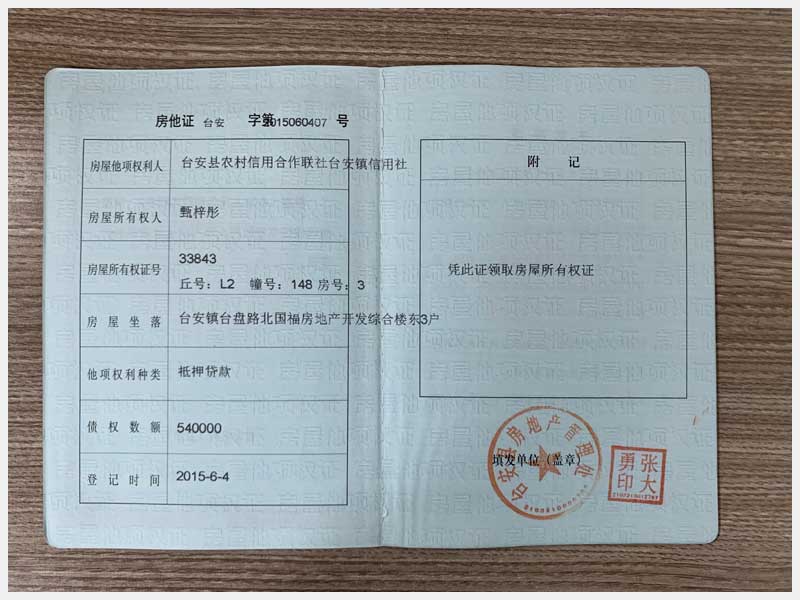 房他证 台安 字第2015060407 号
房屋他项权利人 台安县农村信用合作联社台安镇信用社
房屋所有权人 甄梓彤
房屋所有权证号 33843
丘号：L2 幢号：148 房号：3
房屋坐落 台安镇台盘路北国福房地产开发综合楼东3户
他项权利种类 抵押贷款
债权数额 540000
登记时间 2015-6-4
附记
凭此证领取房屋所有权证
填发单位（盖章）
台安县房地产管理处
张大勇印